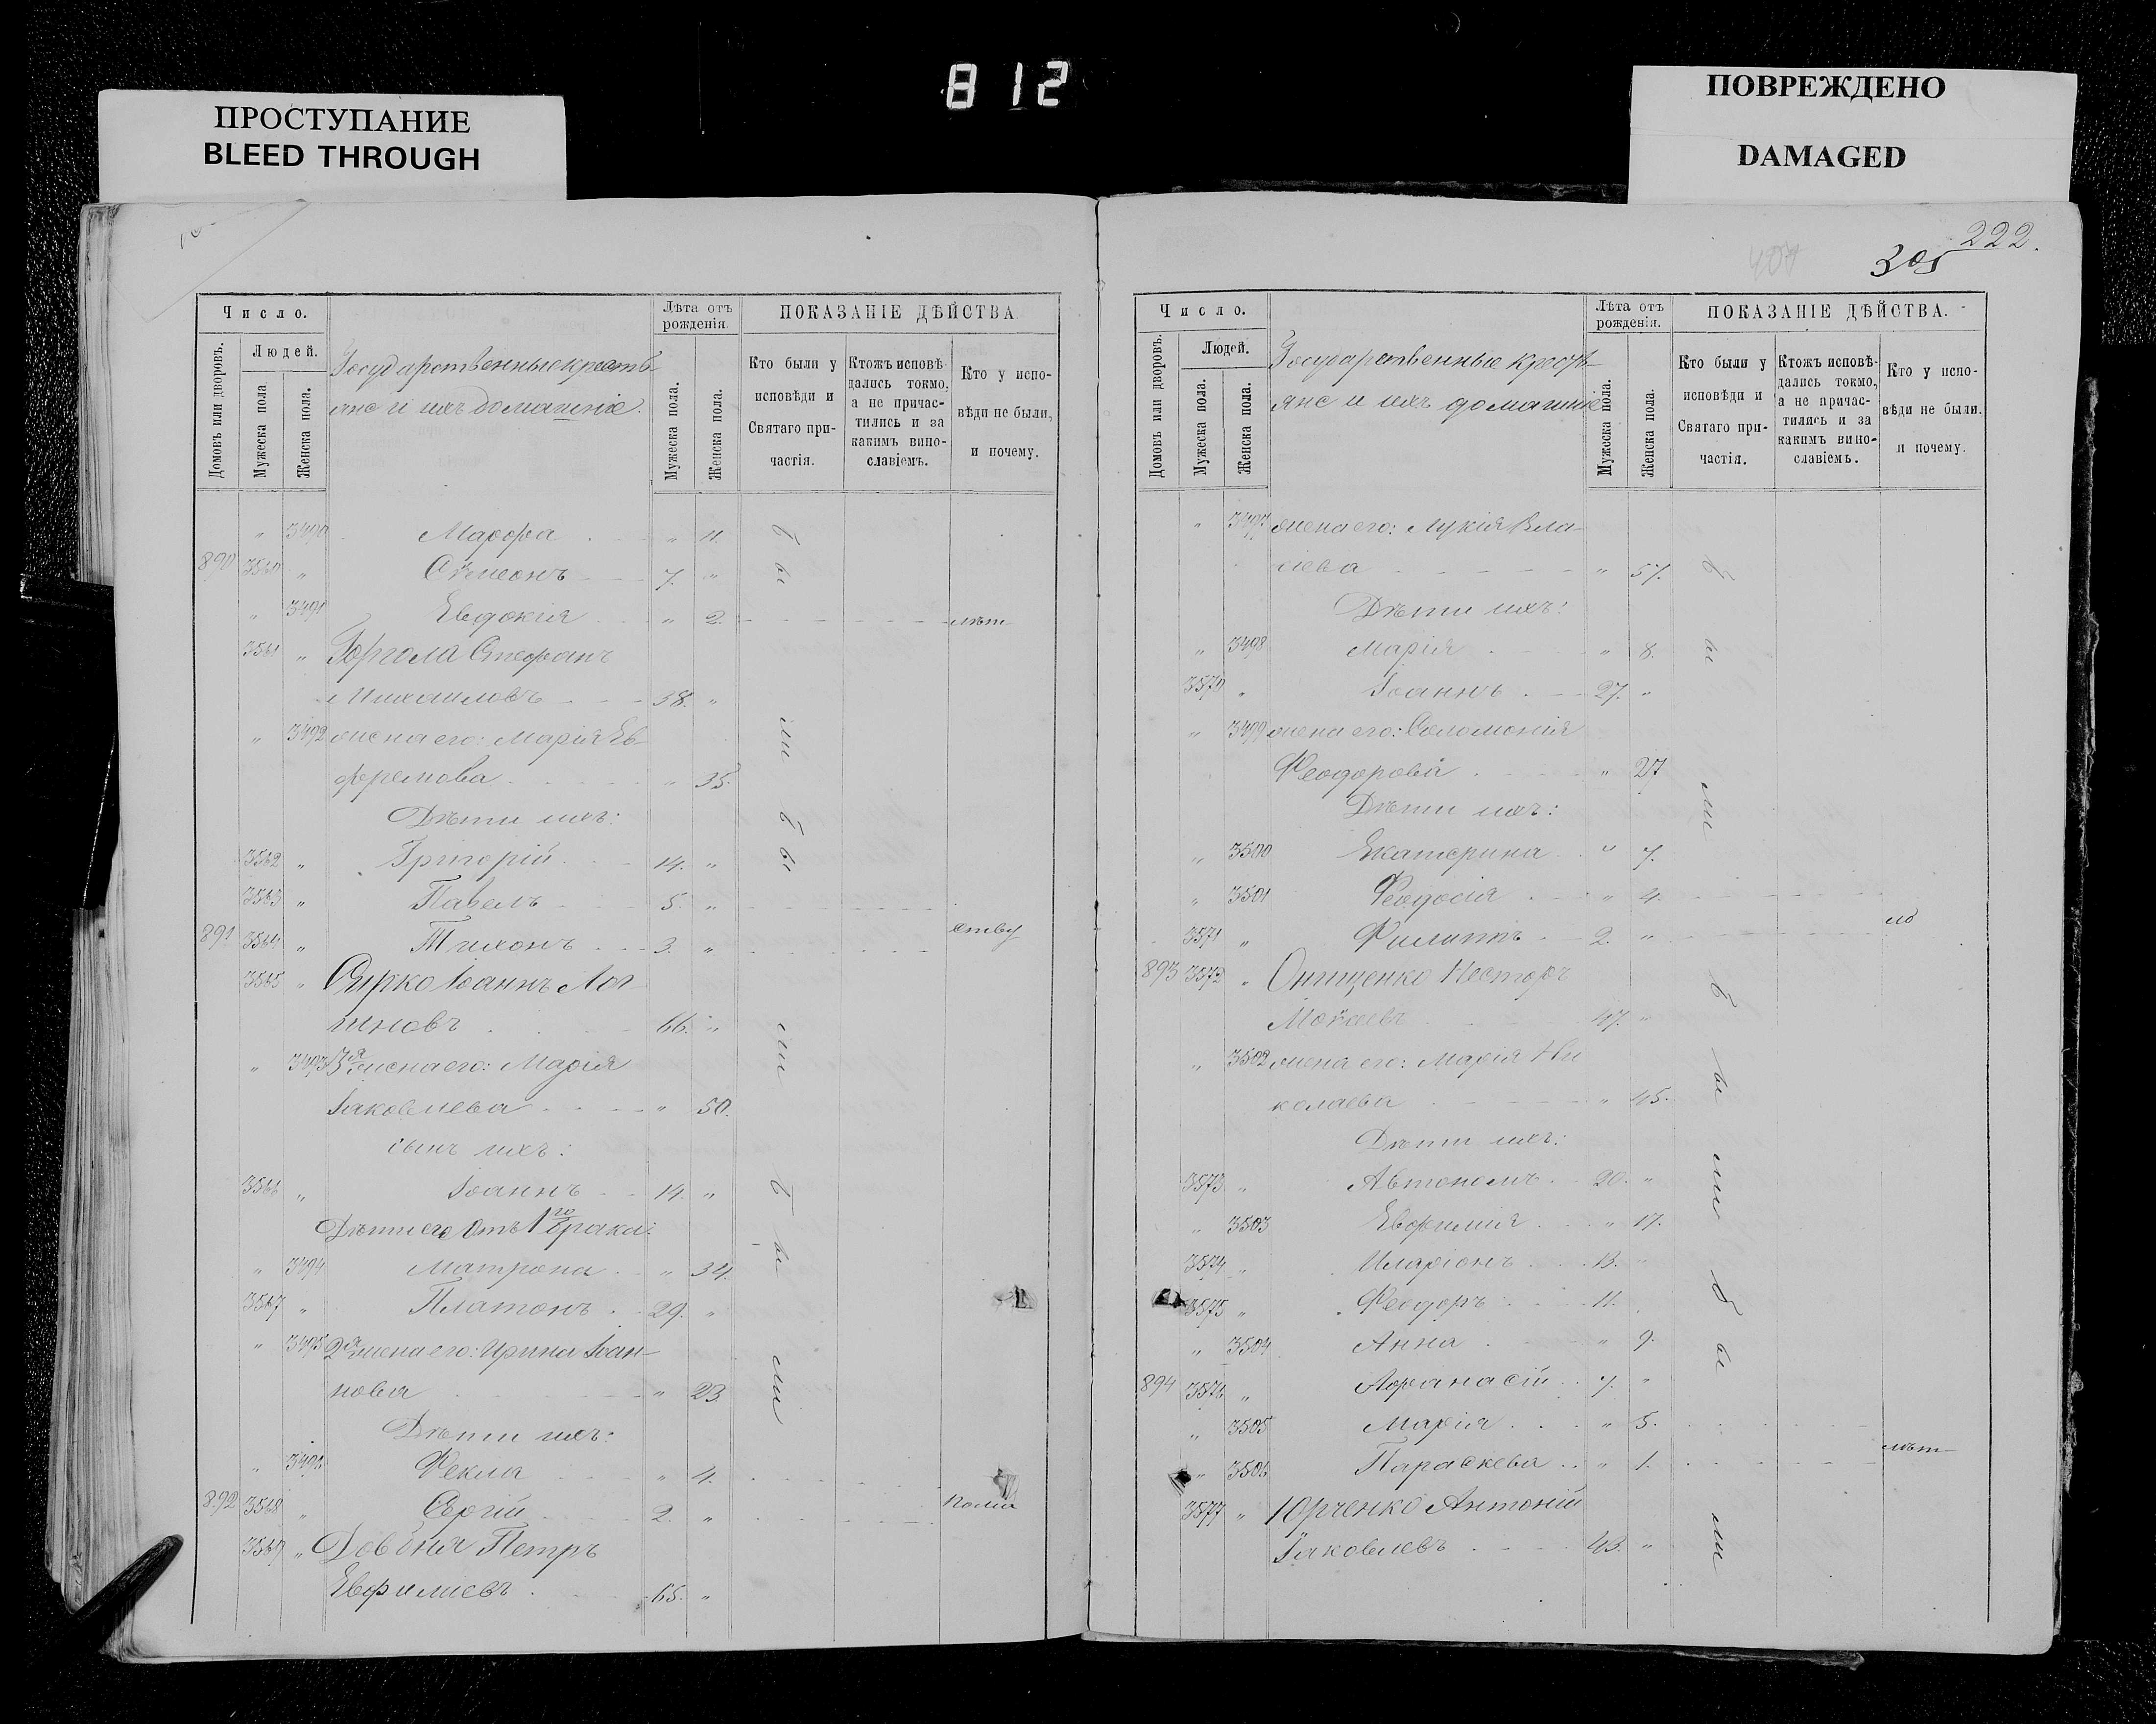 ПРОСТУПАНИЕ
BLEED THROUGH
812
ПОВРЕЖДЕНО
DAMAGED
Число.
Лѣта отъ рожденія.
ПОКАЗАНІЕ ДѢЙСТВА
Домовъ или дворовъ.
Людей.
Мужеска пола
Женска пола.
Государственные кресть-
яне и ихъ домашніе.
Мужеска пола.
Женска пола.
Кто были у исповѣди и Святаго причастія.
Ктожъ исповѣдались токмо, а не причастились и за какимъ винословіемъ.
Кто у исповѣди не были, и почему.
" 3490 Марфа " 11.
890 3560 " Сѵмеонъ 7. "
" 3491 Евдокія " 2. лѣт
3561 " Стефанъ
Михаиловъ 38. "
" 3492 жена его: Марія Ев-
фремова " 35.
Дѣти ихъ:
3562 " Григорій 14. "
3563 " Павелъ 5. "
891 3564 " Тихонъ 3. " ству
3565 " Сирко Іоаннъ Лог
иновъ 66. "
" 3493 жена его: Марія
Іаковлева " 50.
сынъ ихъ:
3566 " Іоаннъ 14. "
Дѣти его отъ 1го брака:
" 3494 Матрона " 34.
3567 " Платонъ 29. "
" 3495 2я жена его: Ирина Іоан-
нова " 23.
Дѣти ихъ:
" 3496 Фекла " 4.
892 3568 " Сергій 2. "
3569 " Петръ
Евфиміевъ 65. "
были были были
222.
305
407
Число.
Лѣта отъ рожденія.
ПОКАЗАНІЕ ДѢЙСТВА.
Домовъ или дворовъ.
Людей.
Мужеска пола.
Женска пола.
Государственные кресть-
яне и ихъ домашніе
Мужеска пола.
Женска пола.
Кто были у исповѣди и Святаго причастія.
Ктожъ исповѣдались токмо, а не причастились и за какимъ винословіемъ.
Кто у исповѣди не были. и почему.
" 3497 жена его: Лукія Вла-
сіева " 57.
Дѣти ихъ:
" 3498 Марія " 8.
3570 " Іоаннъ 27. "
" 3499 жена его: Соломонія
Феодорова " 27
Дѣти ихъ:
" 3500 Екатерина " 7.
" 3501 Феодосія " 4.
3571 " Филиппъ 2. "
893 3572 " Онищенко Несторъ
Моѵсеевъ 47. "
" 3502 жена его: Марія Ни
колаева " 45.
Дѣти ихъ:
3573 " Автономъ 20. "
" 3503 Евфимія " 17.
3574 " Иларіонъ 13. "
3575 " Феодоръ 11.
" 3504 Анна " 9.
894 3576 " Афанасій 7. "
" 3505 Марія " 5.
" 3506 Параскева " 1. лѣт
3577 " Юрченко Антоній
Іаковлевъ 43. "
были были были